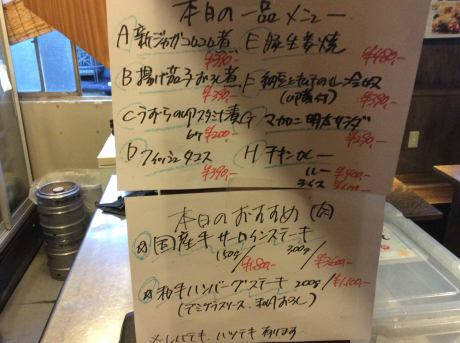 本日の一品メニュー
A 新ジャガコロコロ煮
¥390-
E 豚生姜焼
¥480-
B 揚げ茄子おろし煮
¥390-
F
¥390-
C うずらの卵スタミナ漬
¥200-
G マカロニ明太サラダ
¥290-
D フィッシュタコス
¥390-
H チキンカレー
ルー ¥400-
ライス
本日のおすすめ (肉)
国産牛サーロインステーキ
150g/¥1,800- 300g/¥3,600-
和牛ハンバーグステーキ 200g/¥1,100-
(デミグラスソース、和風おろし)
ハツテキ 有ります